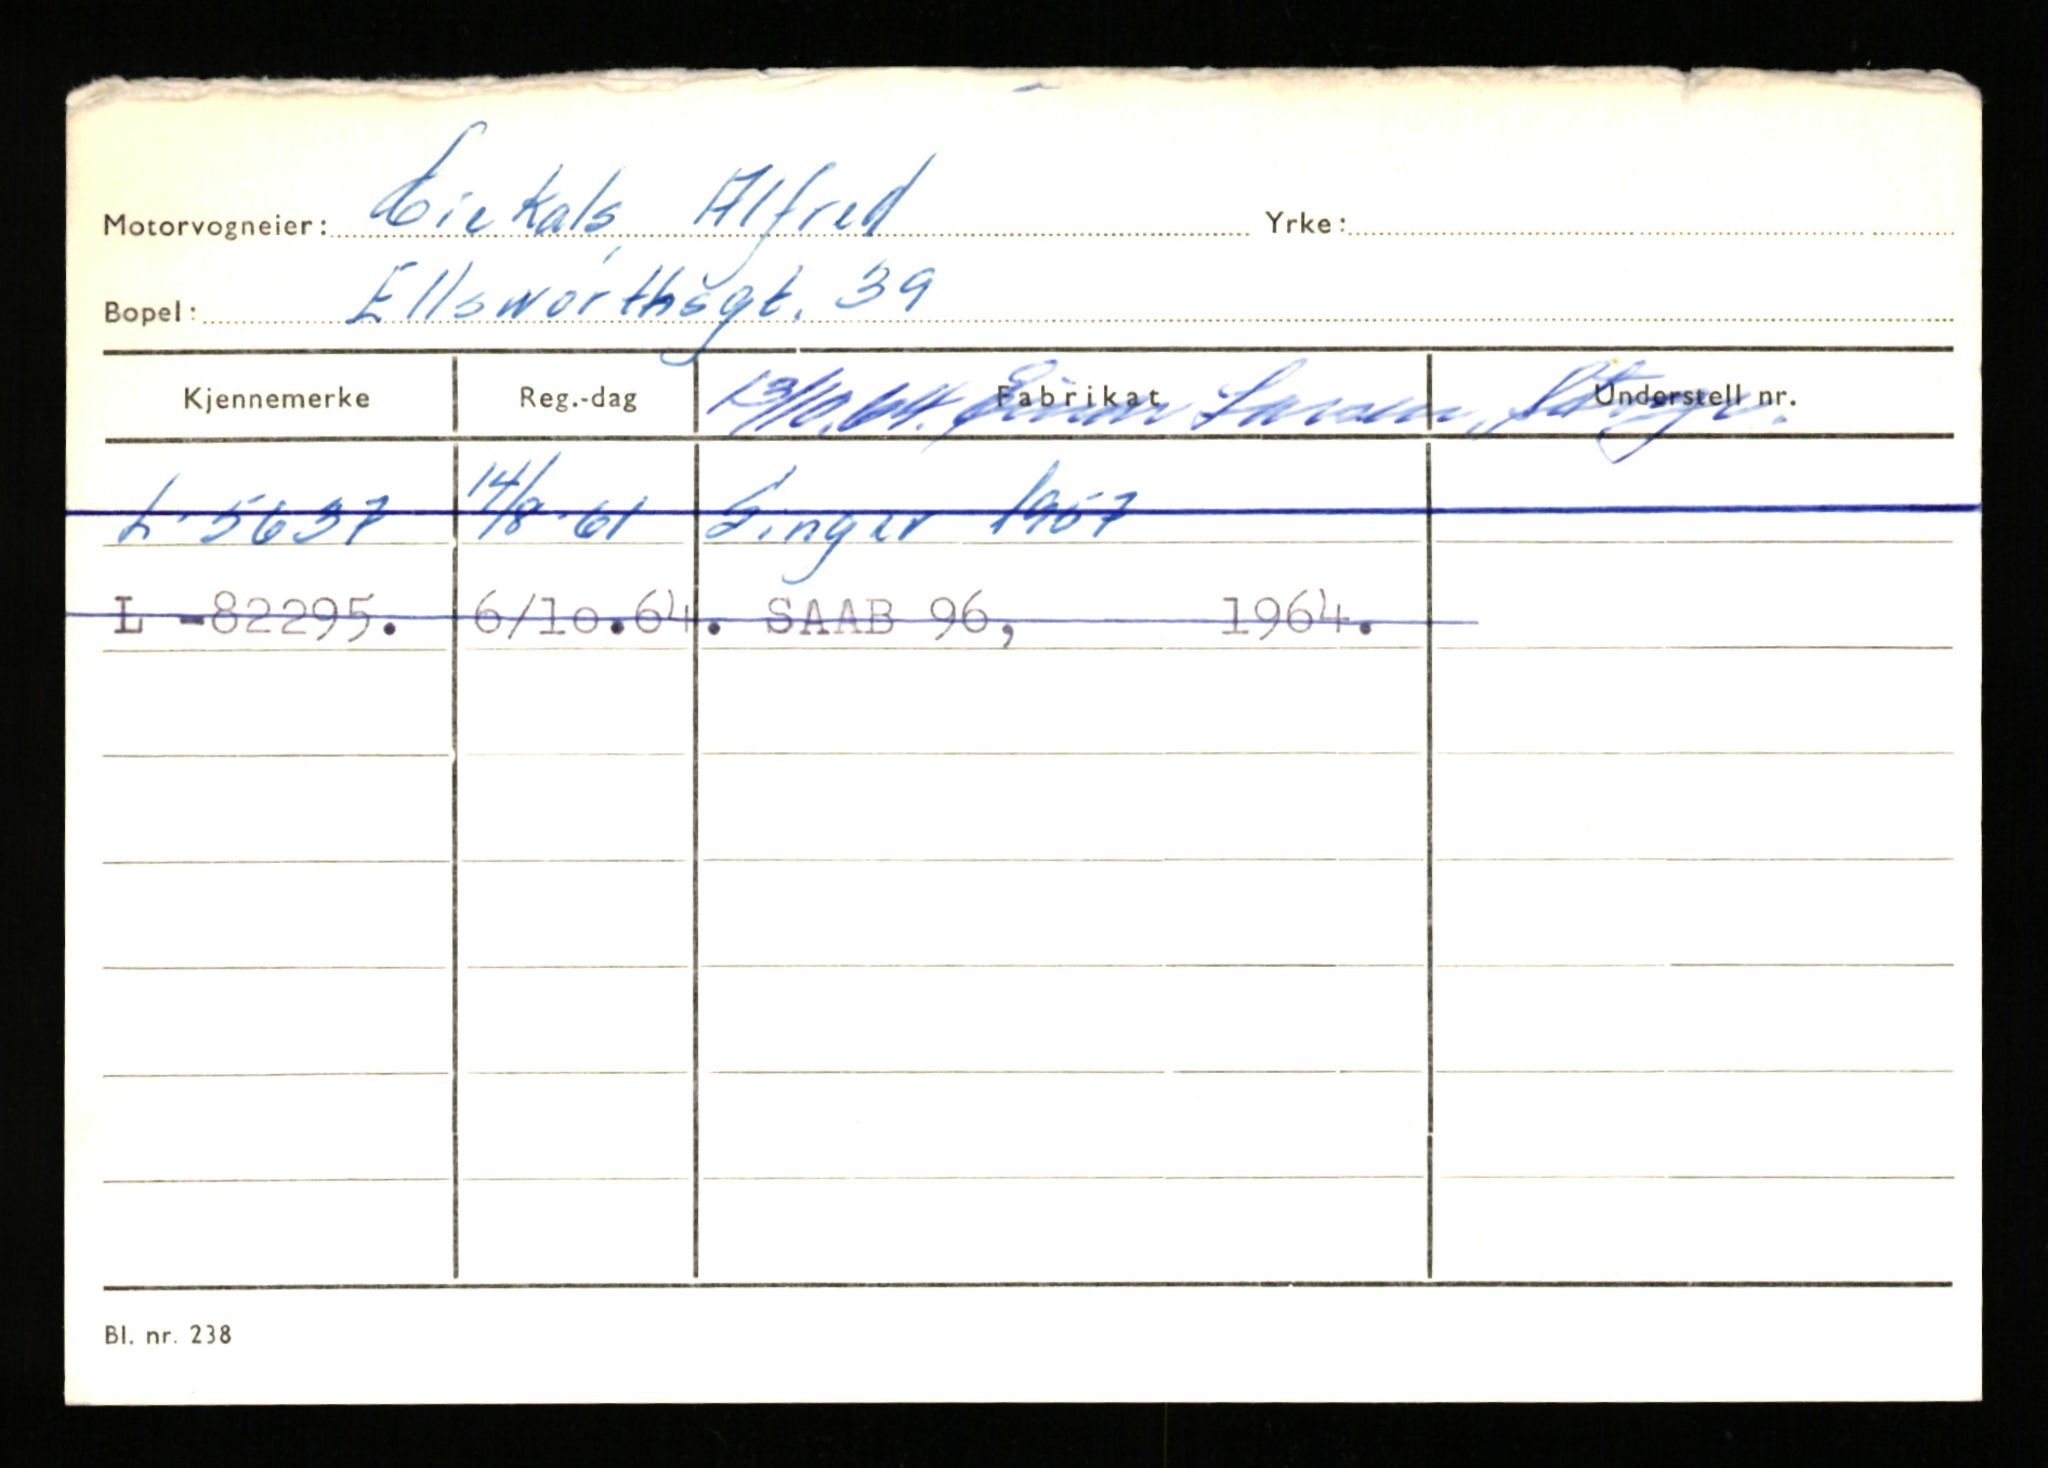 Motorvogneier: Alfred Yrke:
Bopel: Ellsworthsgt. 39
Kjennemerke Reg.-dag Fabrikat Understell nr.
13/10.64. Einar Larsen,
L-5637 14/8-61 Singer 1957
L -82295. 6/10.64. SAAB 96, 1964.
Bl. nr. 238